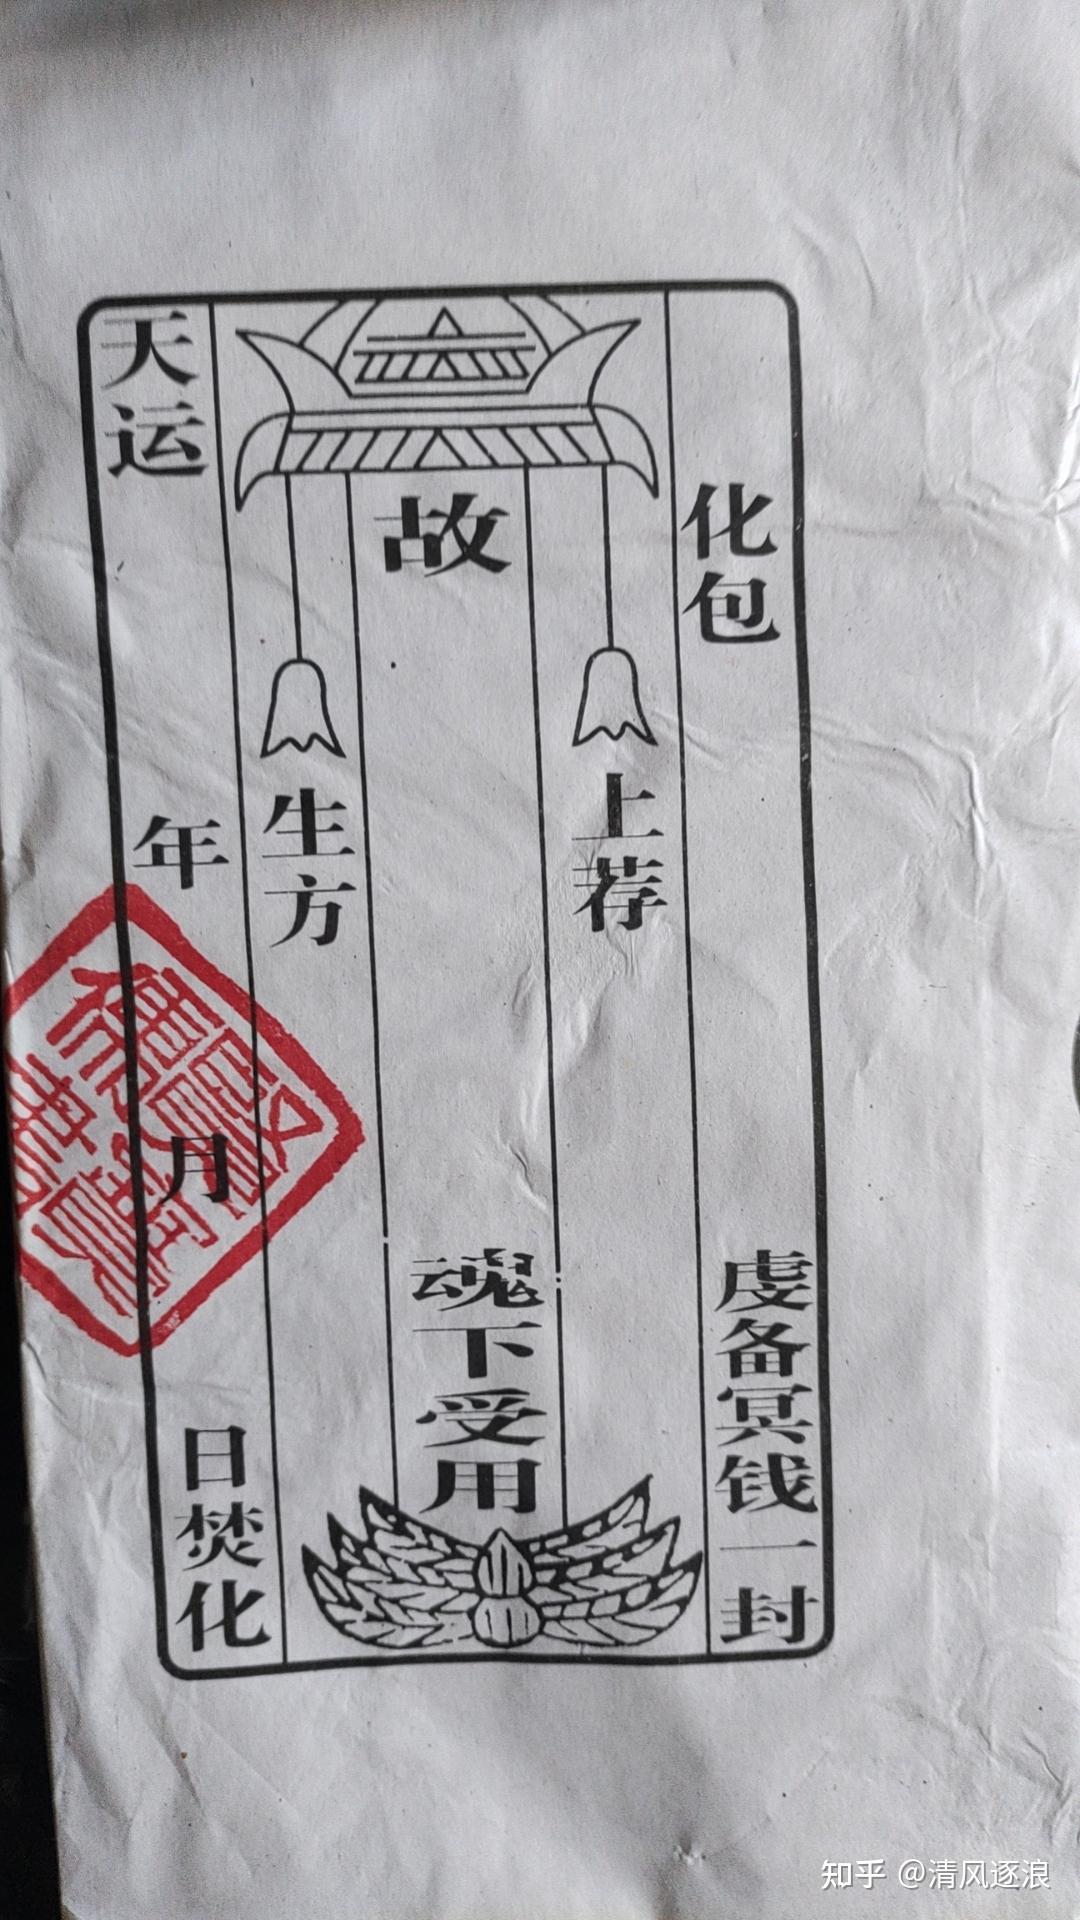 化包 虔备冥钱一封
上荐
故 魂下受用
生方
天运 年 月 日焚化
知乎 @清风逐浪